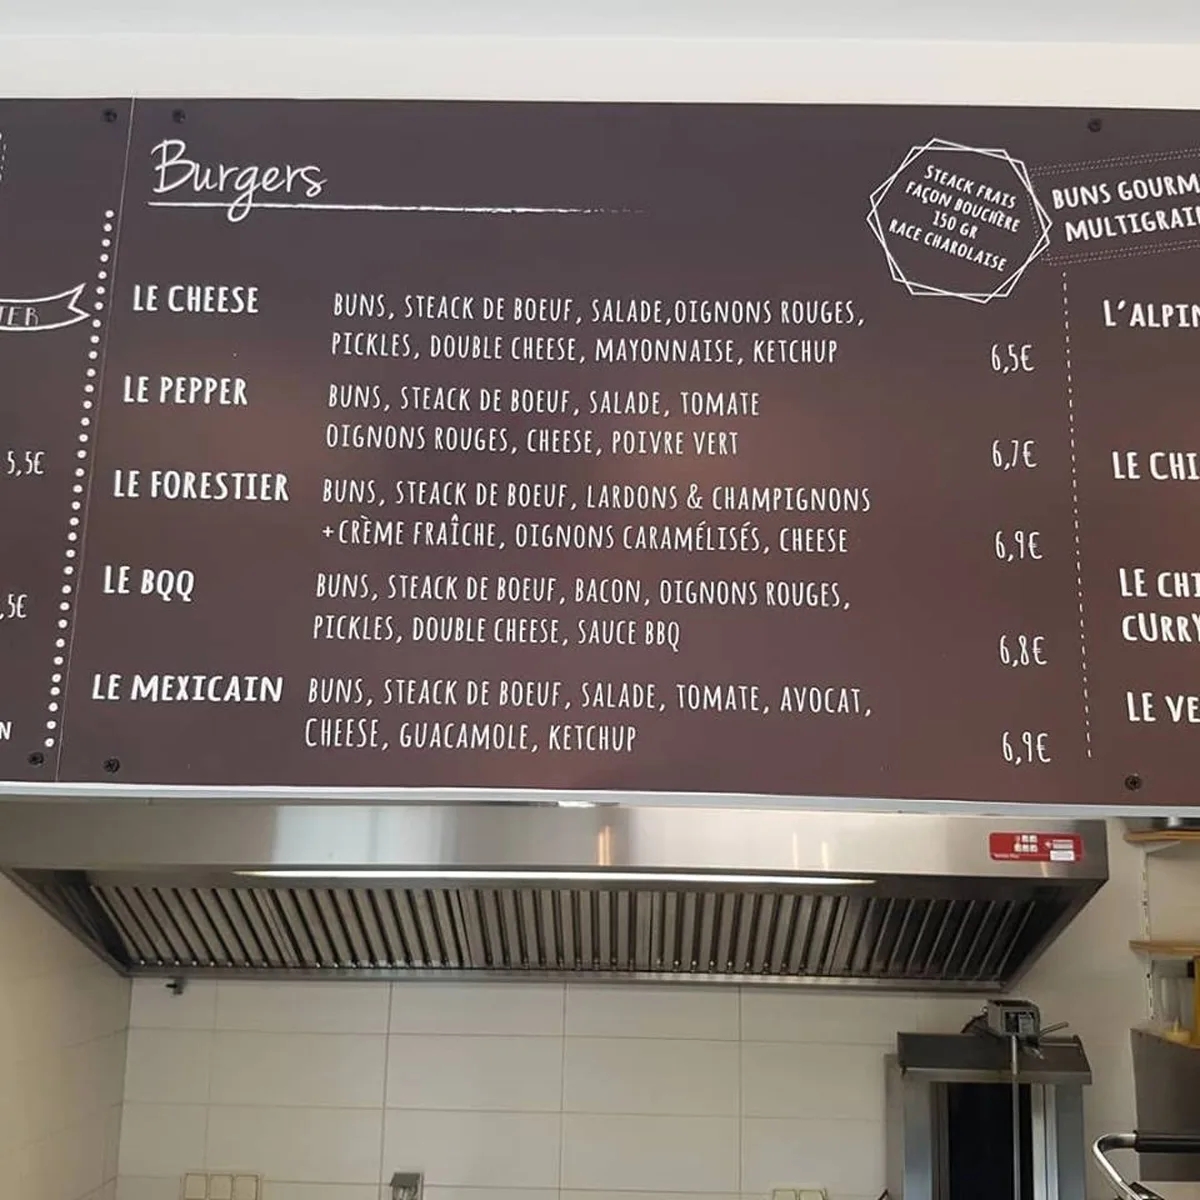 Burgers
STEACK FRAIS
FAÇON BOUCHÈRE
150 GR
RACE CHAROLAISE
LE CHEESE
BUNS, STEACK DE BOEUF, SALADE,OIGNONS ROUGES,
PICKLES, DOUBLE CHEESE, MAYONNAISE, KETCHUP
6,5€
LE PEPPER
BUNS, STEACK DE BOEUF, SALADE, TOMATE
OIGNONS ROUGES, CHEESE, POIVRE VERT
6,7€
LE FORESTIER
BUNS, STEACK DE BOEUF, LARDONS & CHAMPIGNONS
+CRÈME FRAÎCHE, OIGNONS CARAMÉLISÉS, CHEESE
6,9€
LE BQQ
BUNS, STEACK DE BOEUF, BACON, OIGNONS ROUGES,
PICKLES, DOUBLE CHEESE, SAUCE BBQ
6,8€
LE MEXICAIN
BUNS, STEACK DE BOEUF, SALADE, TOMATE, AVOCAT,
CHEESE, GUACAMOLE, KETCHUP
6,9€
5,5€
,5€
N
BUNS GOURM
MULTIGRAI
L'ALPIN
LE CHI
LE CHI
CURRY
LE VE